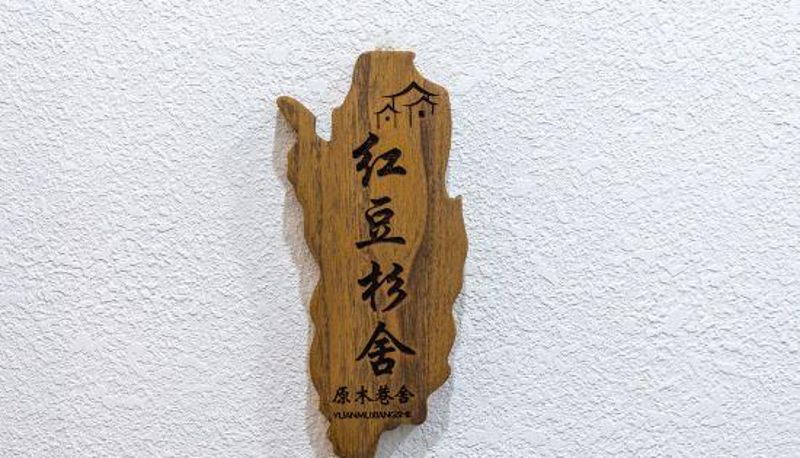 红豆杉舍
原木巷舍
YUANMUXIANGSHE